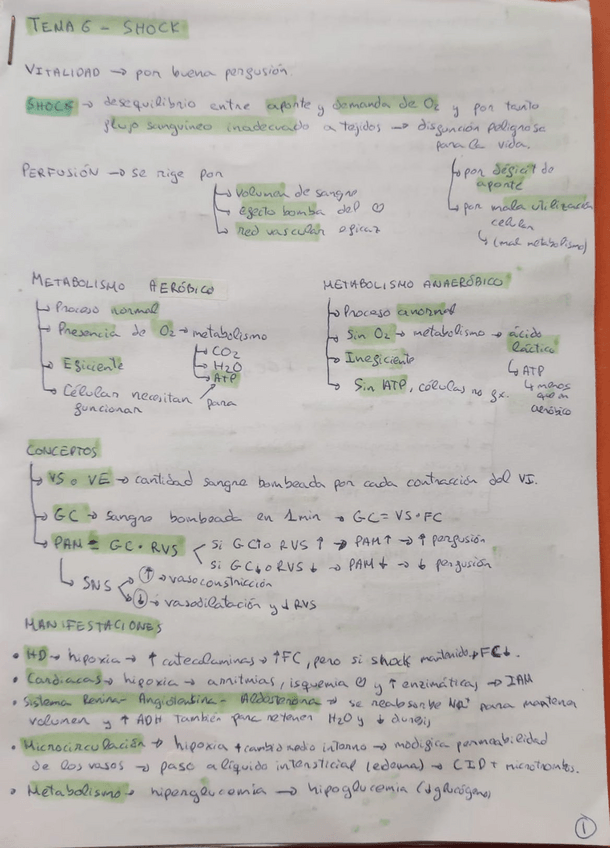 TEMA 6 - SHOCK
VITALIDAD → por buena perfusión.
SHOCK → desequilibrio entre aporte y demanda de O2 y por tanto
flujo sanguíneo inadecuado a tejidos → disfunción peligrosa
para la vida.
↳ por déficit de
aporte
↳ por mala utilización
celular
↳ (mal metabolismo)
PERFUSIÓN → se rige por
↳ volumen de sangre
↳ efecto bomba del ♡
↳ red vascular eficaz
METABOLISMO AERÓBICO
↳ Proceso normal
↳ Presencia de O2 → metabolismo
↳ CO2
↳ H2O
↳ ATP
↳ Eficiente
↳ Células necesitan para
funcionar
METABOLISMO ANAERÓBICO
↳ Proceso anormal
↳ Sin O2 → metabolismo → ácido
láctico
↳ ATP
↳ menos
que en
aeróbico
↳ Ineficiente
↳ Sin ATP, células no fx.
CONCEPTOS
↳ VS o VE → cantidad sangre bombeada por cada contracción del VI.
↳ GC → sangre bombeada en 1 min → GC = VS · FC
↳ PAM = GC · RVS
si GC↑ o RVS ↑ → PAM↑ → ↑ perfusión
si GC↓ o RVS ↓ → PAM ↓ → ↓ perfusión
↳ SNS
↑ → vasoconstricción
↓ → vasodilatación y ↓ RVS
MANIFESTACIONES
• HD → hipoxia → ↑ catecolaminas → ↑FC, pero si shock mantenido → FC↓.
• Cardiacas → hipoxia → arritmias, isquemia ♡ y ↑ enzimáticas → IAM
• Sistema Renina - Angiotensina - Aldosterona → se reabsorbe Na+ para mantener
volumen y ↑ ADH también para retener H2O y ↓ diuresis
• Microcirculación → hipoxia + cambio medio interno → modifica permeabilidad
de los vasos → paso a líquido intersticial (edema) → CID + microtrombos.
• Metabolismo → hiperglucemia → hipoglucemia (↓ glucógeno)
1